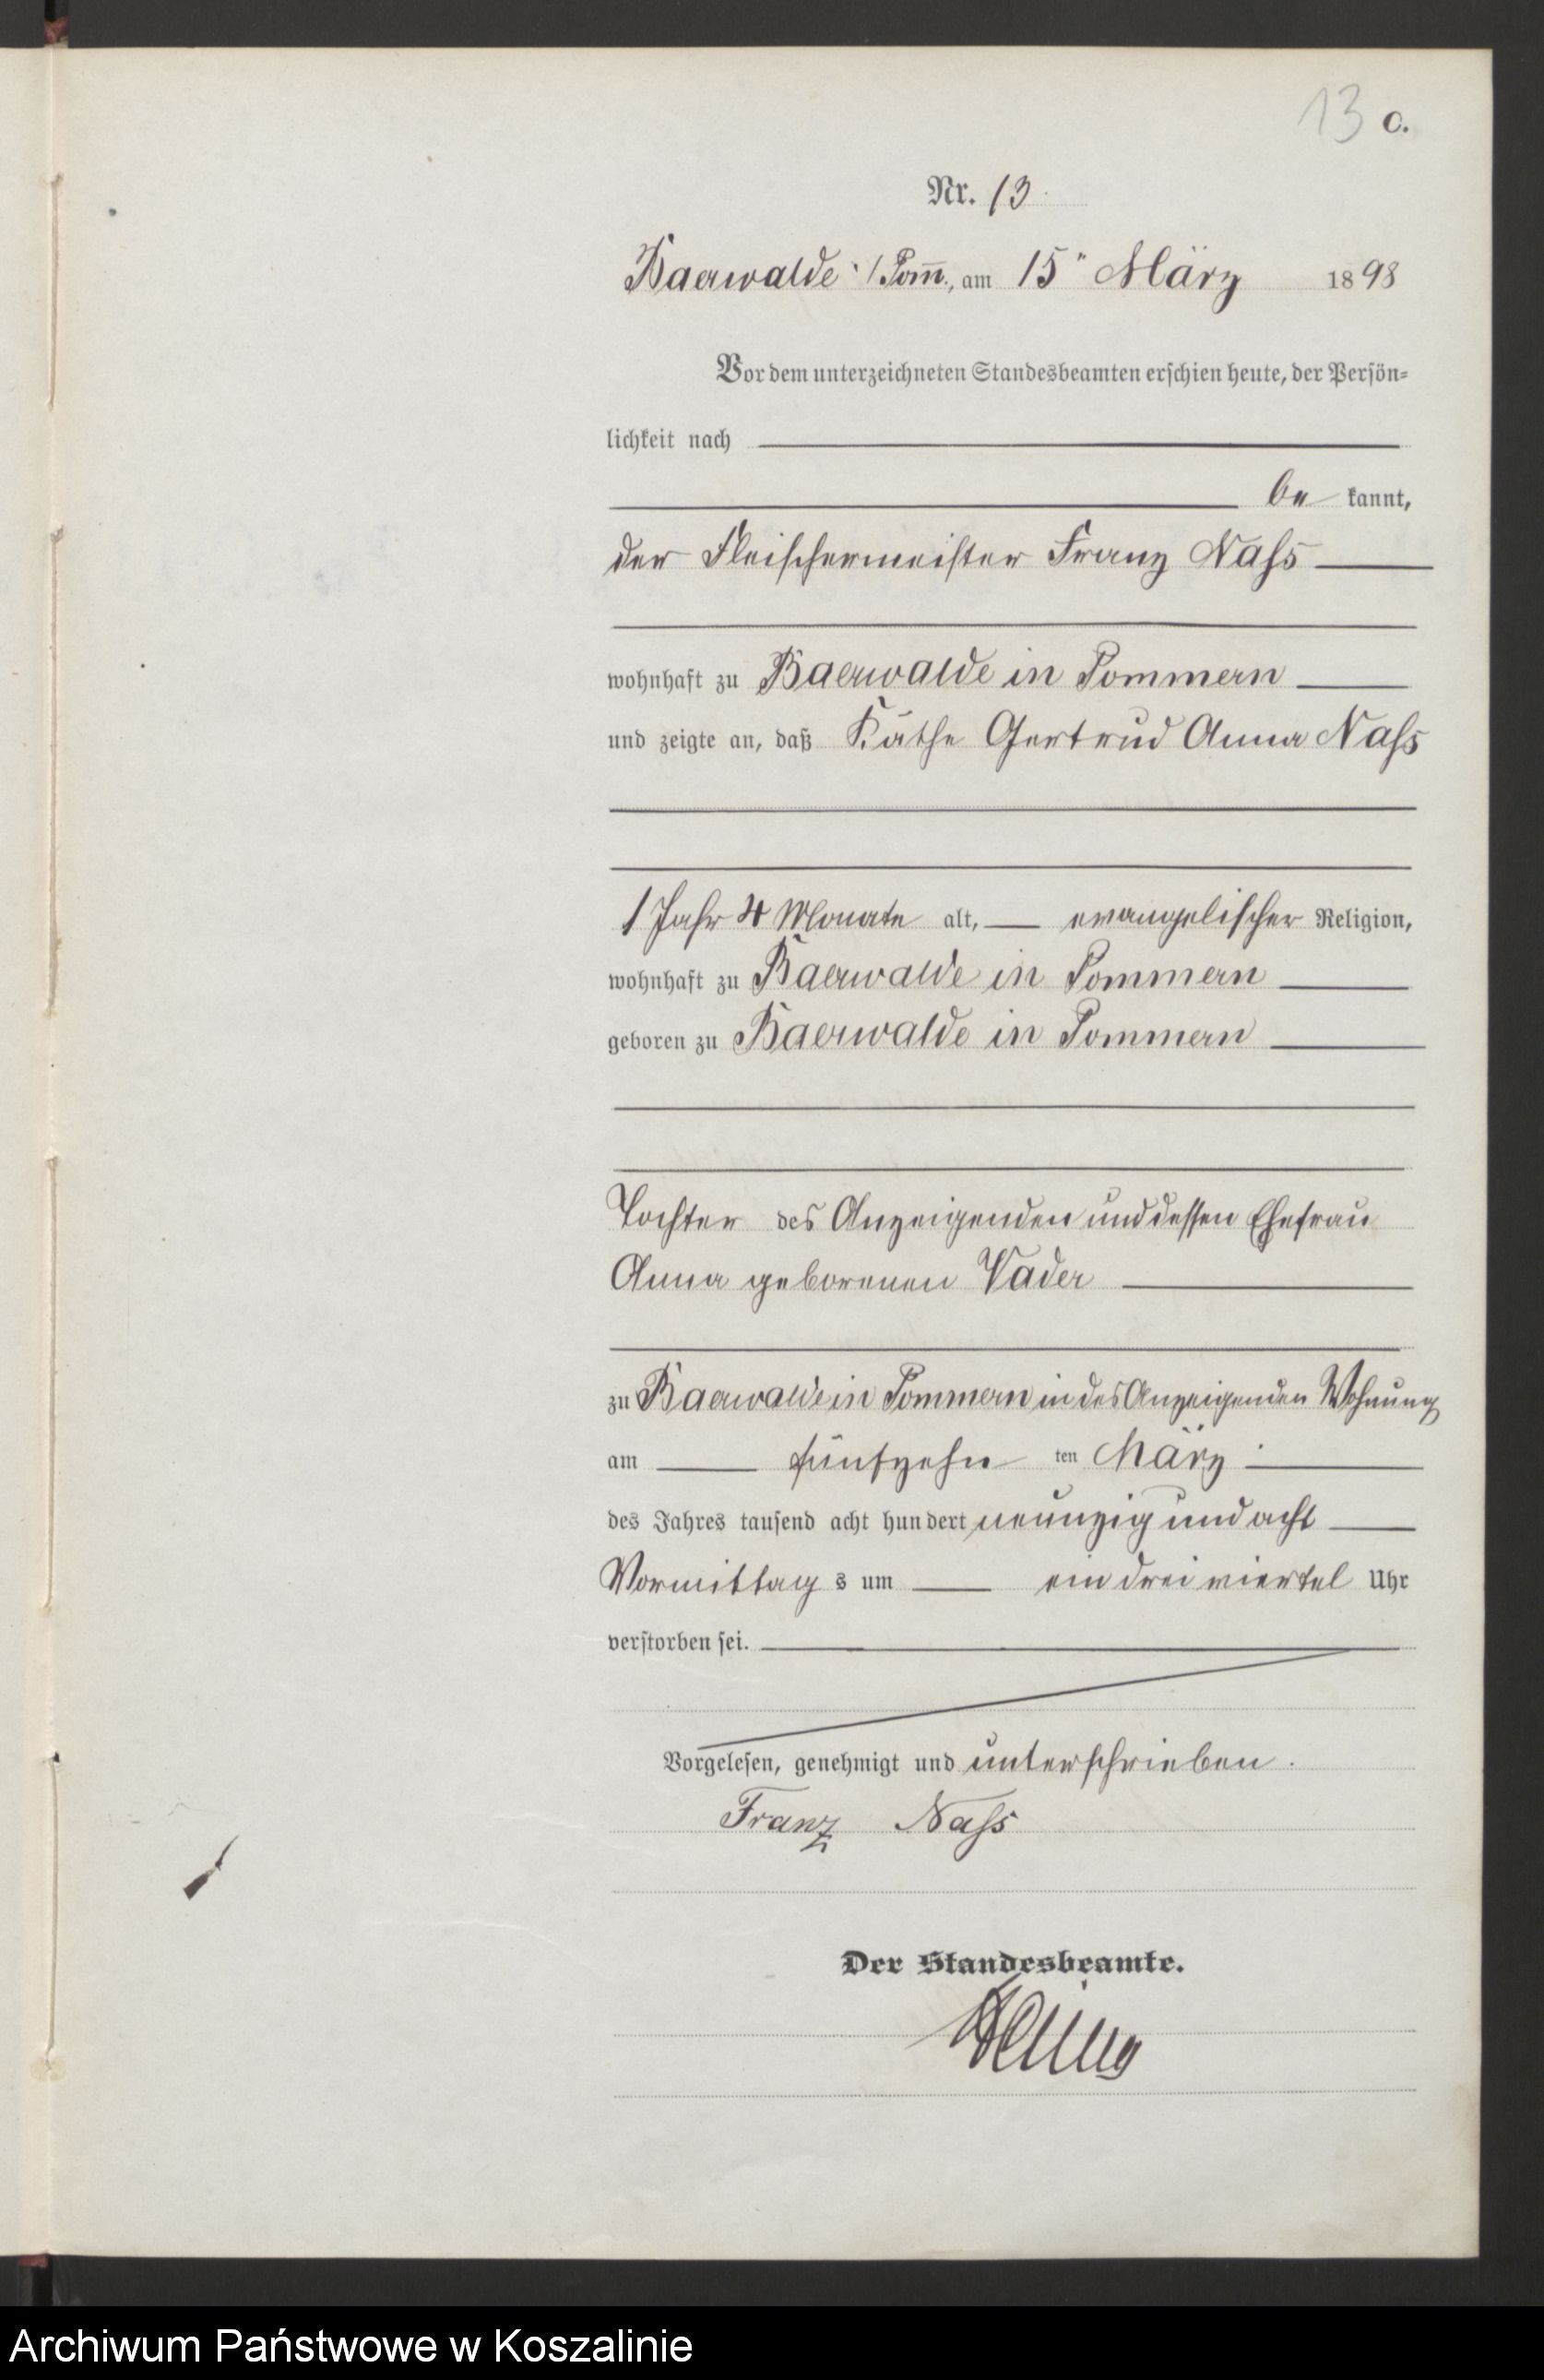 13 C.
Nr. 13
Baerwalde i/Pom̅., am 15" März 1898
Vor dem unterzeichneten Standesbeamten erschien heute, der Persön=
lichkeit nach
be kannt,
der Fleischermeister Franz Nass
wohnhaft zu Baerwalde in Pommern
und zeigte an, daß Käthe Gertrud Anna Nass
1 Jahr 4 Monate alt, evangelischer Religion,
wohnhaft zu Baerwalde in Pommern
geboren zu Baerwalde in Pommern
Tochter des Anzeigenden und dessen Ehefrau
Anna geborenen Vader
zu Baerwalde in Pommern in des Anzeigenden Wohnung
am fünfzehn ten März
des Jahres tausend acht hundert neunzig und acht
Vormittag s um ein drei viertel Uhr
verstorben sei.
Vorgelesen, genehmigt und unterschrieben.
Franz Nass
Der Standesbeamte.
Archiwum Państwowe w Koszalinie